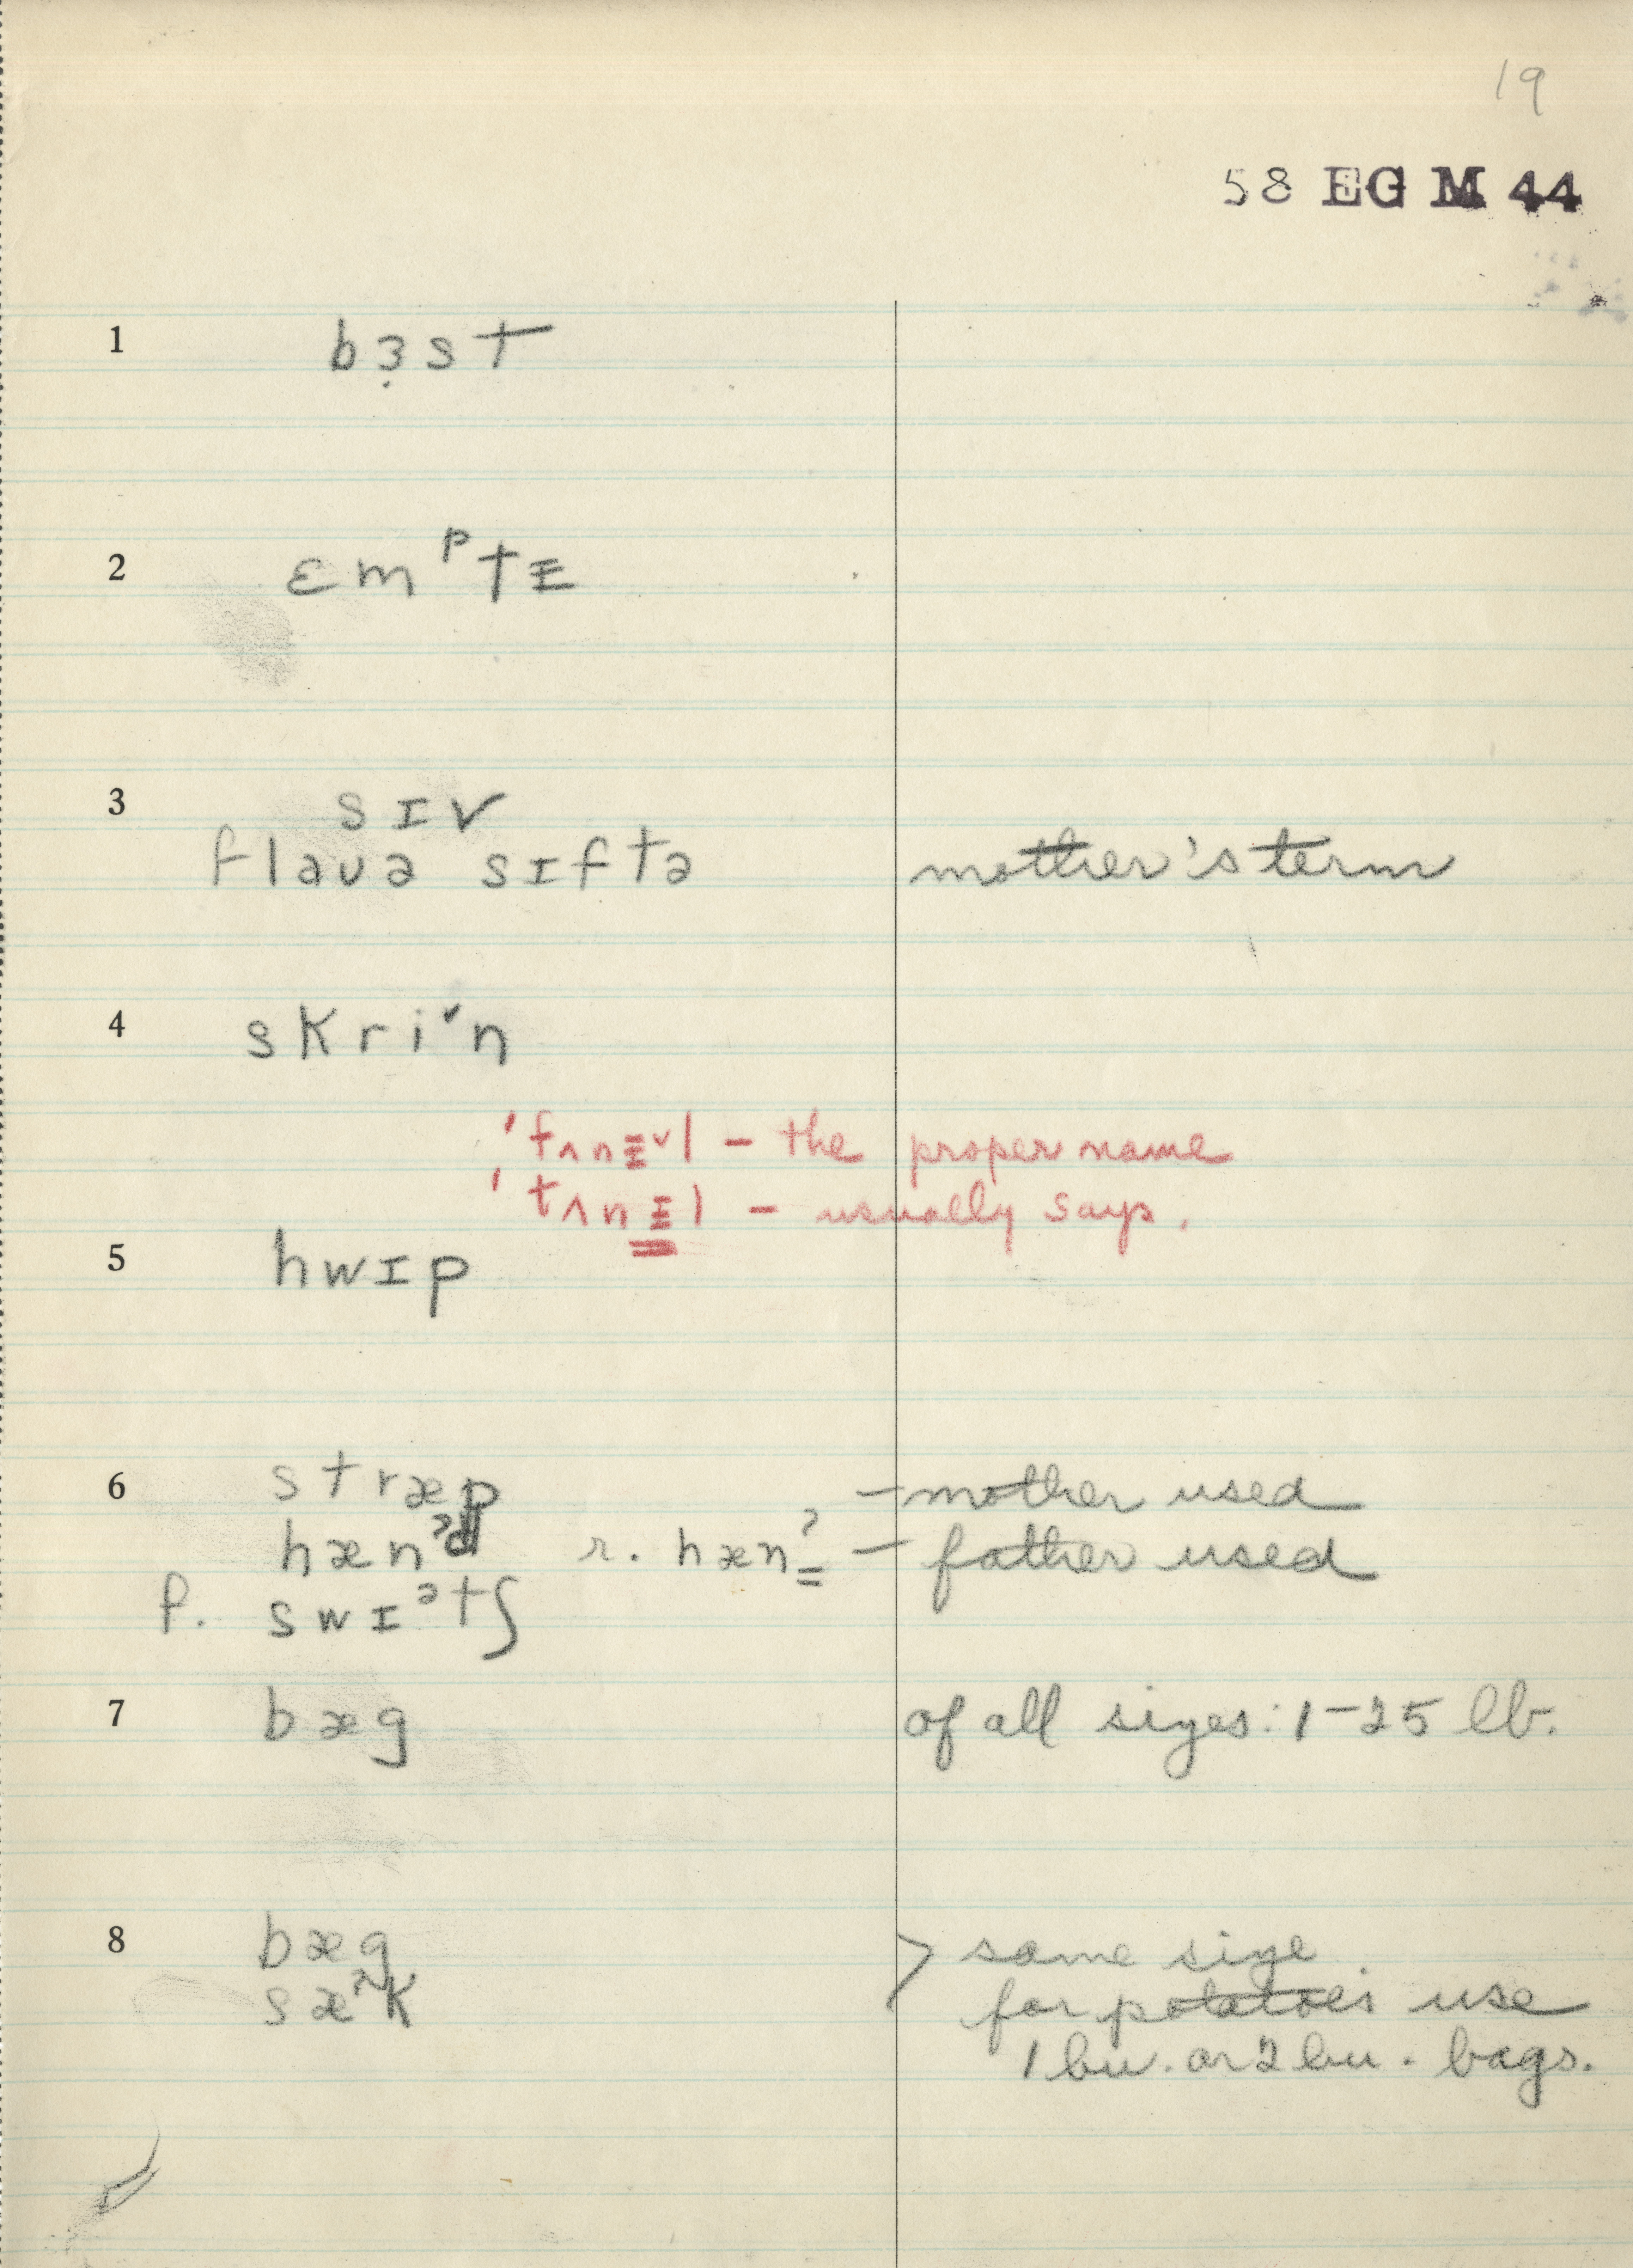 19
58 EG M 44
1 bɜ̣st
2 ɛmᵖtɪ̵
3 sɪv
flaʊə sɪftə mother's term
4 skri˅n
'fʌnɪ̵˅l – the proper name
'tʌnɪ̵l – usually says.
5 hwɪp
6 stræp – mother used
hænᵊd r. hæn̳ᵊ – father used
f. swɪᵊtʃ
7 bæg of all sizes: 1–25 lb.
8 bæg > same size
sæ^k for potatoes use
1 bu. or 2 bu. bags.